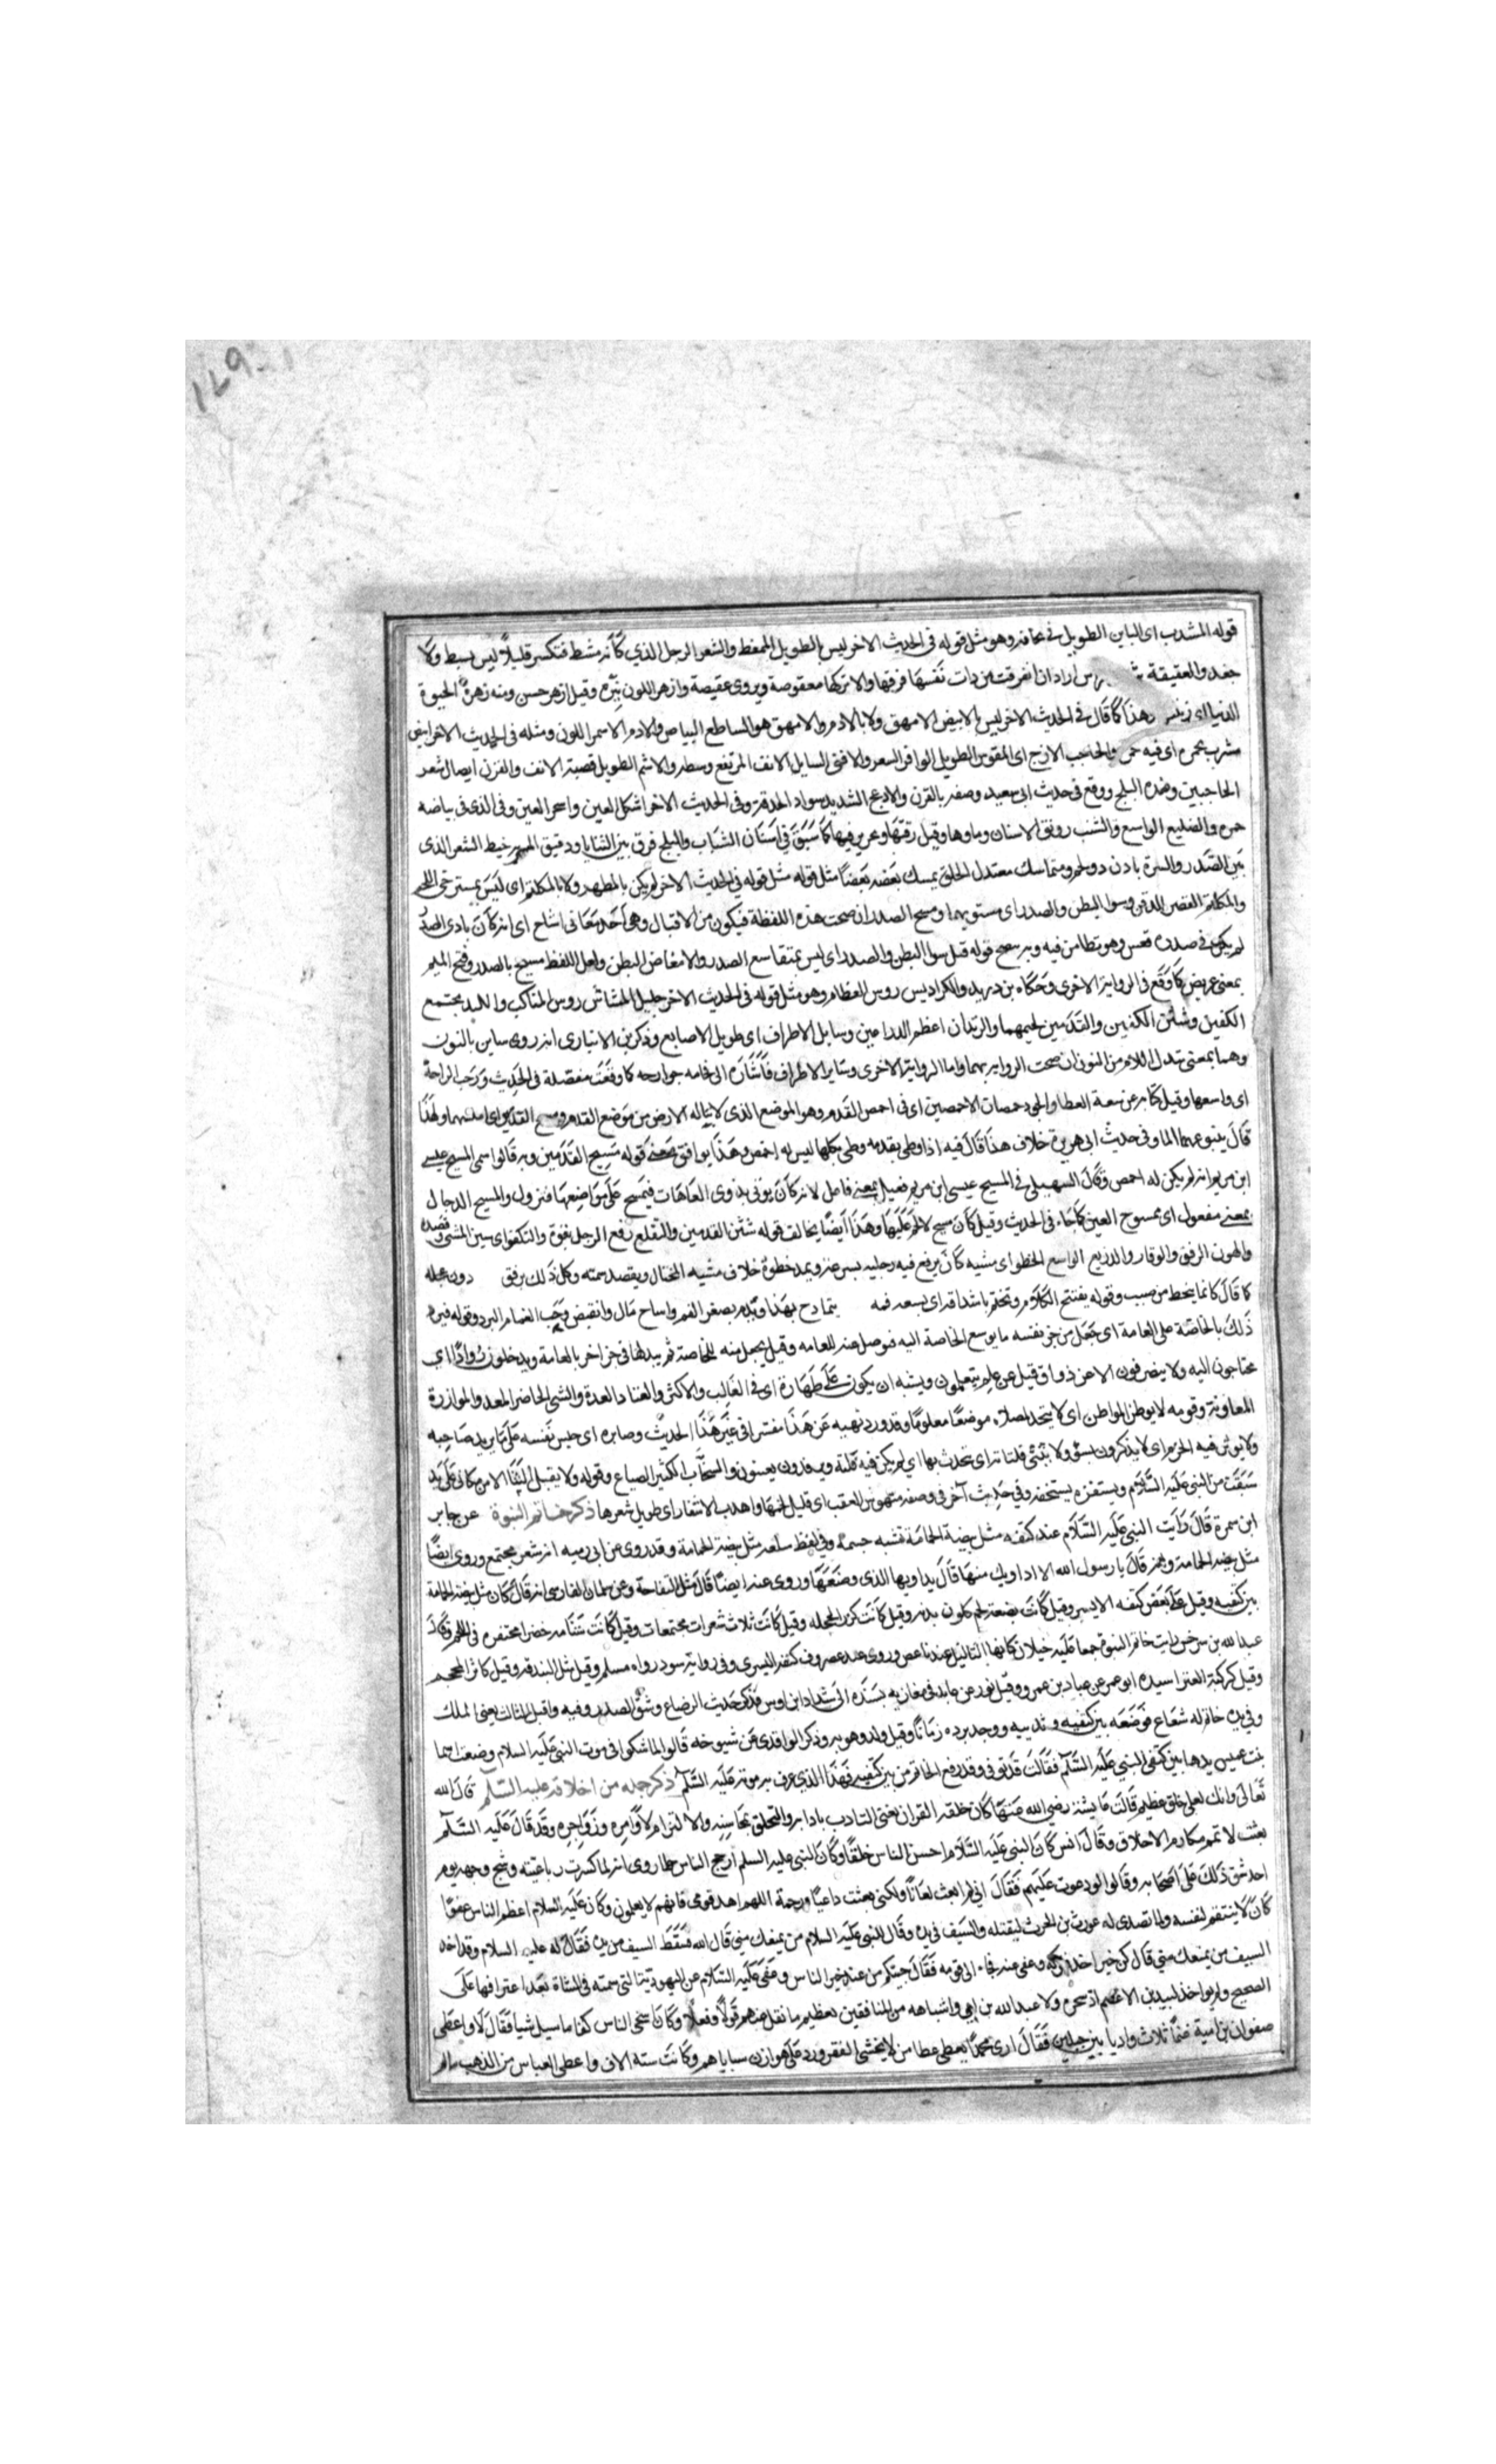 ١٤٩
قوله المشذب اى الباين الطويل فى نحافة وهو مثل قوله فى الحديث الاخر ليس بالطويل الممغط والشعر الرجل الذي كأنه مشط فتكسر قليلاً ليس بسبط ولا
جعد والعقيقة اراد ان انفرقت من ذات نفسها فرقها والا تركها معقوصة ويروى عقيصة وازهر اللون نيره وقيل ازهر حسن ومنه زهرة الحيوة
الدنيا اى زينتها وهذا كما قال فى الحديث الاخر ليس بالابيض الامهق ولا بالادم والامهق هو الساطع البياض والادم الاسمر اللون ومثله فى الحديث الاخر ابيض
مشرب بحمره اى فيه حمره والحاجب الازج اى المقوس الطويل الوافر الشعر والاقنى السايل الانف المرتفع وسطه والاشم الطويل قصبة الانف والقرن اتصال شعر
الحاجبين وضده البلج ووقع فى حديث ام معبد وصفه بالقرن والادعج الشديد سواد الحدقة وفى الحديث الاخر اشكل العين واسجر العين وهو الذى فى بياضه
حمره والضليع الواسع والشنب رونق الاسنان وماوها وقيل رقتها وتحزيز فيها كما سبق فى اسنان الشباب والفلج فرق بين الثنايا ودقيق المسربه خيط الشعر الذى
بين الصدر والسرة بادن ذو لحم ومتماسك معتدل الخلق يمسك بعضه بعضاً مثل قوله فى الحديث الاخر لم يكن بالمطهم ولا بالمكلثم اى ليس بمسترخى اللحم
والمكلثم القصير الذقن وسوا البطن والصدر اى مستويهما ومشيح الصدر ان صحت هذه اللفظة فيكون من الاقبال وهى احد معانى اشاح اى انه كان بادى الصدر
لم يكن فى صدره قعس وهو تطامن فيه وبه يتضح قوله قبل سوا البطن والصدر اى ليس بمتقاعس الصدر ولا مفاض البطن ولعل اللفظ مسيح بالصدر وفتح الميم
بمعنى عريض كما وقع فى الرواية الاخرى وحكاه بن دريد والكراديس روس العظام وهو مثل قوله فى الحديث الاخر جليل المشاش روس المناكب والكتد مجتمع
الكفين وشثن الكفين والقدمين لحيمهما والزندان اعظم الذراعين وسايل الاطراف اى طويل الاصابع وذكر بن الانبارى انه روى ساين بالنون
وهما بمعنى تبدل اللام من النون ان صحت الرواية بهما واما الرواية الاخرى وساير الاطراف فاشاره الى فخامه جوارحه كما وقعت مفصلة فى الحديث ورحب الراحة
اى واسعها وقيل كنا به عن سعة العطا والجود خمصان الاخمصين اى فى اخمص القدم وهو الموضع الذى لا يناله الارض من وسط القدم ومسيح القدمين اى املسهما ولهذا
قال ينبو عنهما الما وفى حديث ابى هريرة خلاف هذا قال فيه اذا وطى بقدمه وطى بكلها ليس له اخمص وهذا يوافق معنى قوله مسيح القدمين وبه قالوا سمى المسيح عيسى
ابن مريم انه لم يكن له اخمص وقال السهيلى فى المسيح عيسى ابن مريم فعيل بمعنى فاعل لانه كان يوتى بذوى العاهات فيمسح على مواضعها فتزول والمسيح الدجال
بمعنى مفعول اى ممسوح العين كما جاء فى الحديث وقيل كان مسيح لا لحم عليها وهذا ايضا يخالف قوله شثن القدمين والتقلع رفع الرجل بقوة والتكفو اى سنن المشى وقصده
والهون الرفق والوقار والذريع الواسع الخطو اى مشيه كان يرفع فيه رجليه بسرعة ويمد خطوه خلاف مشيه المختال ويقصد سمته وكل ذلك برفق دون عجله
كما قال كانما ينحط من صبب وقوله يفتتح الكلام ويختم باشداقه اى لسعه فمه يتمادح بهذا ويذم بصغر الفم واشاح مال وانقبض وحب الغمام البرد وقوله فيرد
ذلك بالخاصة على العامة اى جعل من جز نفسه ما يوسع الخاصة اليه فتوصل عنه للعامه وقيل يجعل منه للخاصة ثم يبدلها فى جز اخر بالعامة ويدخلون رواداً اى
محتاجون اليه ولا ينصرفون الا عن ذواق قيل عن علم يتعلمون ويشبه ان يكون على ظاهره اى فى الغالب والاكثر والعتاد العدة والشى الحاضر المعد والموازرة
المعاونة وقومه لا يوطن المواطن اى لا يتخذ لمصلاه موضعاً معلوماً وقد ورد نهيه عن هذا مفسرا فى غير هذا الحديث وصابره اى حبس نفسه على ما يريد صاحبه
ولا توبن فيه الحرم اى لا يذكرون بسوء ولا تنثى فلتاته اى يتحدث بها اى لم يكن فيه فلتة ويرفدون يعينون والسخاب الكثير الصياح وقوله ولا يقبل الثنا الا من مكافى على يد
سبقت من النبى عليه السلام ويستفزه يستخفه وفى حديث آخر فى وصفه منهوس العقب اى قليل لحمها واهدب الاشفار اى طويل شعرها ذكر خاتم النبوة عن جابر
ابن سمرة قال رايت النبى عليه السلام عند كتفه مثل بيضة الحمامة تشبه جسمه وفى لفظ سلعه مثل بيضة الحمامة وقد روى عن ابى رمثه انه شعر مجتمع وروى ايضاً
مثل بيضة الحمامة قال يا رسول الله الا اداويك منها قال يداويها الذى وضعها وروى عنه ايضاً قال مثل التفاحة وعن سلمان الفارسى انه قال كان مثل بيضة الحمامة
بين كتفيه وقيل على بعض كتفه الايسر وقيل كانت بضعة لحم كلون بدنه وقيل كانت كزر الحجله وقيل كانت ثلاث شعرات مجتمعات وقيل كانت شامه خضرا محتفره فى اللحم وقال
عبد الله بن سرجس رايت خاتم النبوة جمعا عليه خيلان كانها الثاليل عند ناغض وروى عند غضروف كتفه اليسرى وفى رواية سود رواه مسلم وقيل مثل البندقه وقيل كاثر المحجم
وقيل كركبة العنز اسنده ابو عمر عن عباد بن عمرو وقيل نور عن عايذ فى مغازيه بسنده الى شداد ابن اوس فذكر حديث الرضاع وشق الصدر وفيه واقبل الثالث يعنى الملك
وفى يده خاتم له شعاع فوضعه بين كتفيه وثدييه ووجد برده زماناً وقيل ولد وهو به وذكر الواقدى عن شيوخه قالوا لما شكوا فى موت النبى عليه السلام وضعت اسما
بنت عميس يدها بين كتفى النبى عليه السلام فقالت قد توفى وقد رفع الخاتم من بين كتفيه فهذا الذى عرف به موته عليه السلم ذكر جمله من اخلاقه عليه السلم قال الله
تعالى وانك لعلى خلق عظيم قالت عايشة رضى الله عنها كان خلقه القران يعنى التادب بادابه والتخلق بمحاسنه والالتزام لاوامره وزواجره وقد قال عليه السلم
بعثت لاتمم مكارم الاخلاق وقال انس كان النبى عليه السلام احسن الناس خلقاً وكان النبى عليه السلم ارجح الناس حلما روى انه لما كسرت رباعيته وشج وجهه يوم
احد شق ذلك على اصحابه وقالوا لو دعوت عليهم فقال انى لم ابعث لعاناً ولكنى بعثت داعياً ورحمة اللهم اهد قومى فانهم لا يعلمون وكان عليه السلام اعظم الناس عفوا
كان لا ينتقم لنفسه ولما تصدى له غورث بن الحرث ليقتله والسيف فى يده وقال للنبى عليه السلام من يمنعك منى قال الله فسقط السيف من يده فقال له عليه السلام وقد اخذ
السيف من يمنعك منى قال كن خير اخذ فتركه وعفى عنه فجاء الى قومه فقال جيتكم من عند خير الناس وعفى عليه السلام عن اليهودية التى سمته فى الشاة بعد اعترافها على
الصحيح ولم يواخذ لبيد بن الاعصم اذ سحره ولا عبد الله بن ابى واشباهه من المنافقين بعظيم ما نقل عنهم قولاً وفعلاً وكان اسخى الناس كفا ما سيل شيا فقال لا واعطى
صفوان بن امية غنماً ثلاث واديا بين جبلين فقال ارى محمداً يعطى عطا من لا يخشى الفقر ورد على هوازن سباياهم وكانت ستة الاف واعطى العباس من الذهب ما لم